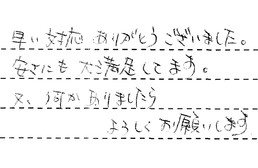 早い対応ありがとうございました。
安さにも大満足してます。
又、何かありましたら
よろしくお願いします